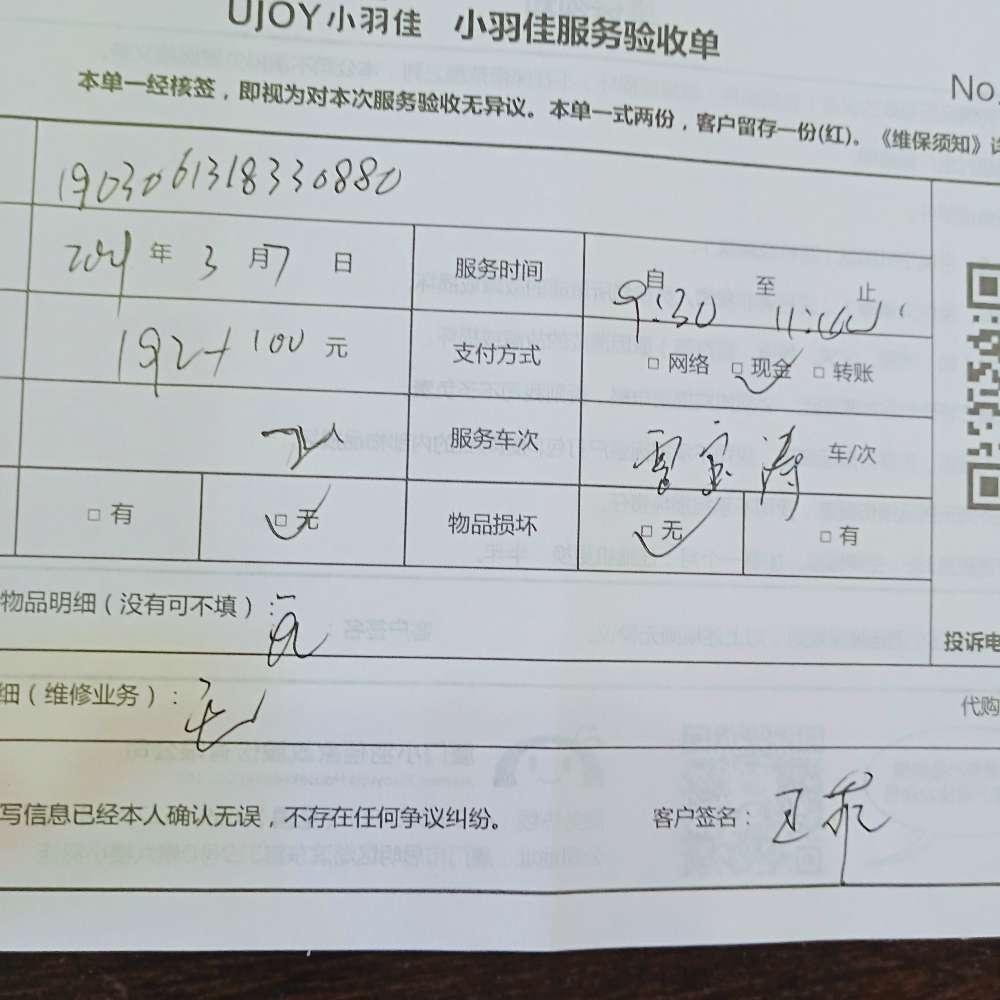 UJOY小羽佳 小羽佳服务验收单
No.
本单一经核签，即视为对本次服务验收无异议。本单一式两份，客户留存一份(红)。《维保须知》详
190306131833 0880
2021年3月7日 服务时间 自9:30至11:00止
192+100元 支付方式 □网络 □现金 □转账
服务车次 车/次
□有 □无 物品损坏 □无 □有
物品明细（没有可不填）：无
投诉电
细（维修业务）：无
代购
写信息已经本人确认无误，不存在任何争议纠纷。 客户签名：